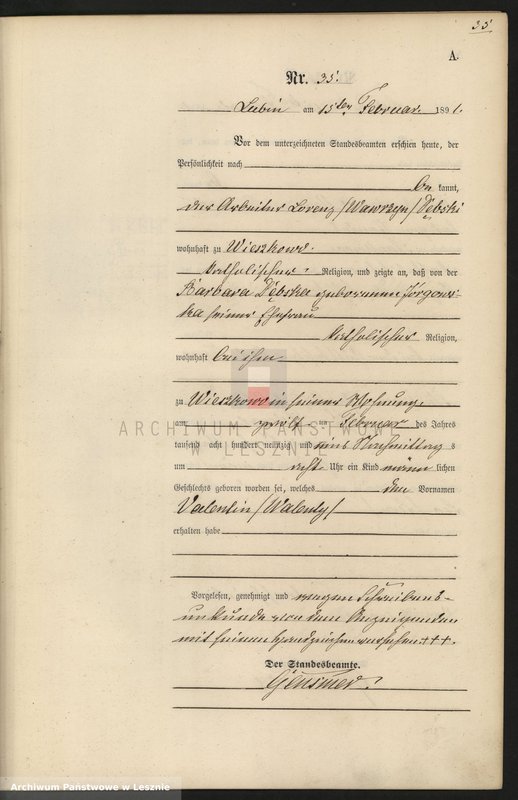 35.
A.
Nr. 35.
Lubin am 15ten Februar 1891.
Vor dem unterzeichneten Standesbeamten erschien heute, der
Persönlichkeit nach
be kannt,
der Arbeiter Lorenz /Wawrzyn/ Dębski
wohnhaft zu Wieszkowo
katholischer Religion, und zeigte an, daß von der
Barbara Dębska geborenen
ka seiner Ehefrau
katholischer Religion,
wohnhaft bei ihm
zu Wieszkowo in seiner Wohnung,
am zwölften Februar des Jahres
tausend acht hundert neunzig und eins Nachmittag s
um acht Uhr ein Kind männ lichen
Geschlechts geboren worden sei, welches den Vornamen
Valentin /Walenty/
erhalten habe
Vorgelesen, genehmigt und wegen Schreibens-
unkunde von dem Anzeigenden
mit seinem Handzeichen versehen +++.
Der Standesbeamte.
ARCHIWUM PAŃSTWOWE
W LESZNIE
Archiwum Państwowe w Lesznie